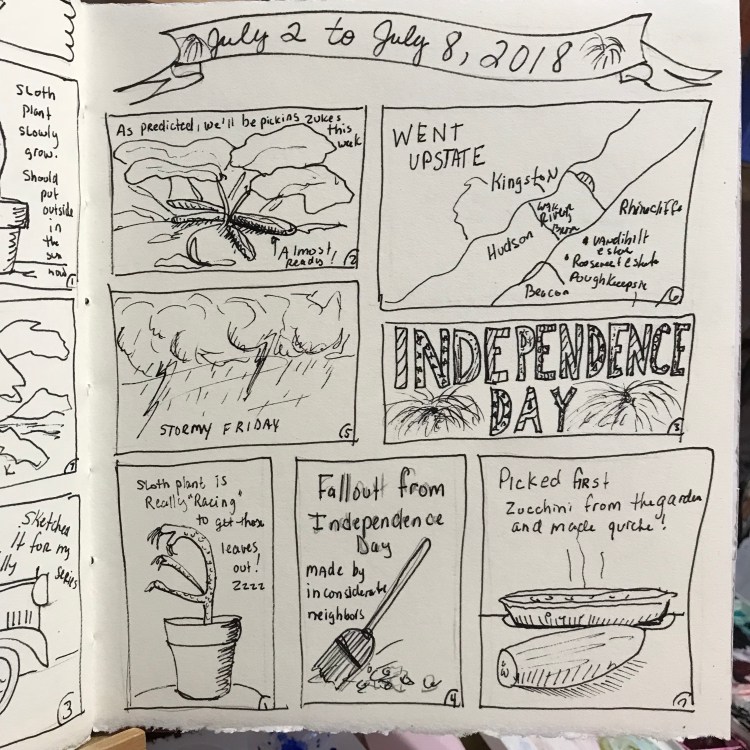 July 2 to July 8, 2018
Sloth
plant
slowly
grow.
Should
put
outside
in
the
sun
now
1
Sketched
it for my
series
3
As predicted, we'll be picking zukes
this
week
Almost
Ready!
2
WENT
UPSTATE
Kingston
Rhinecliffe
Hudson
River
Vandibilt
estate
Roosevelt estate
Poughkeepsie
Beacon
6
STORMY FRIDAY
5
INDEPENDENCE
DAY
3
Sloth plant is
Really "Racing"
to get those
leaves
out!
Zzzz
1
Fallout from
Independence
Day
made by
inconsiderate
neighbors
4
Picked first
Zucchini from the garden
and made quiche!
7